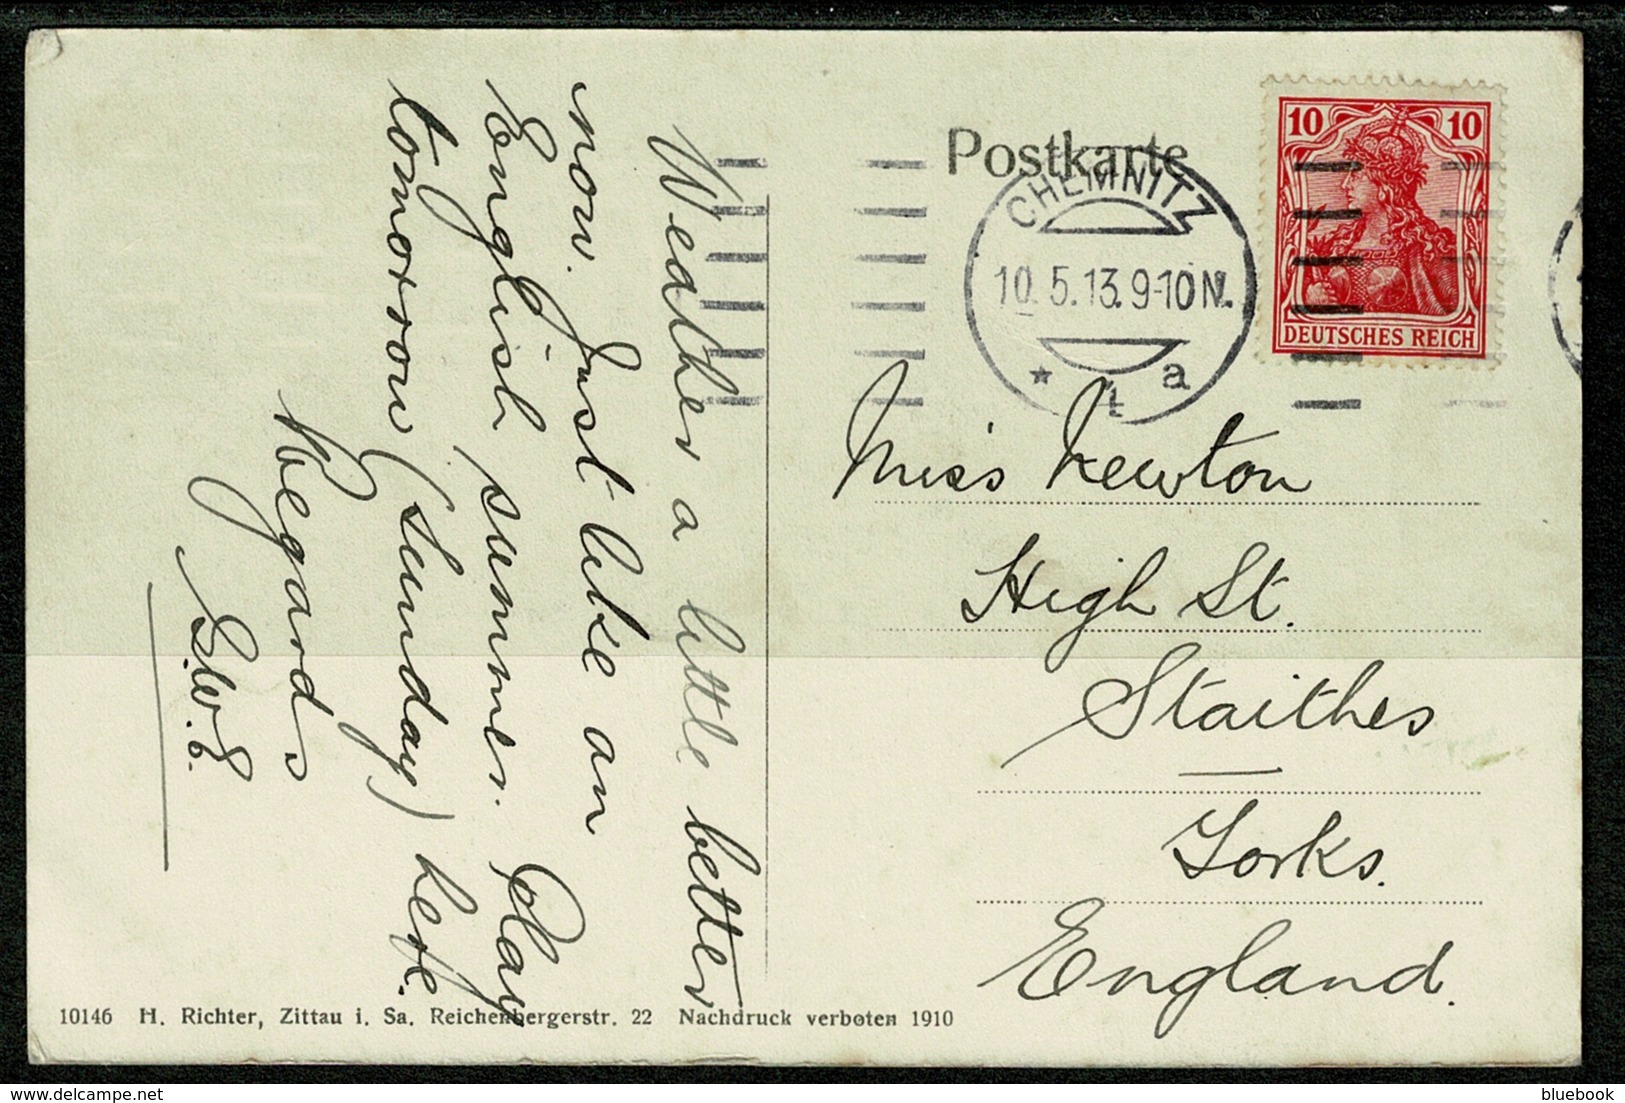 Postkarte
CHEMNITZ
10.5.13.9-10N.
* 4 a
10 10
DEUTSCHES REICH
Weather a little better
now. Just like an
English summer. Play
tomorrow (Sunday) here.
Regards
G.W.E.
Miss Newton
High St.
Staithes
Yorks.
England.
10146 H. Richter, Zittau i. Sa. Reichenbergerstr. 22 Nachdruck verboten 1910
delcampe.net
bluebook